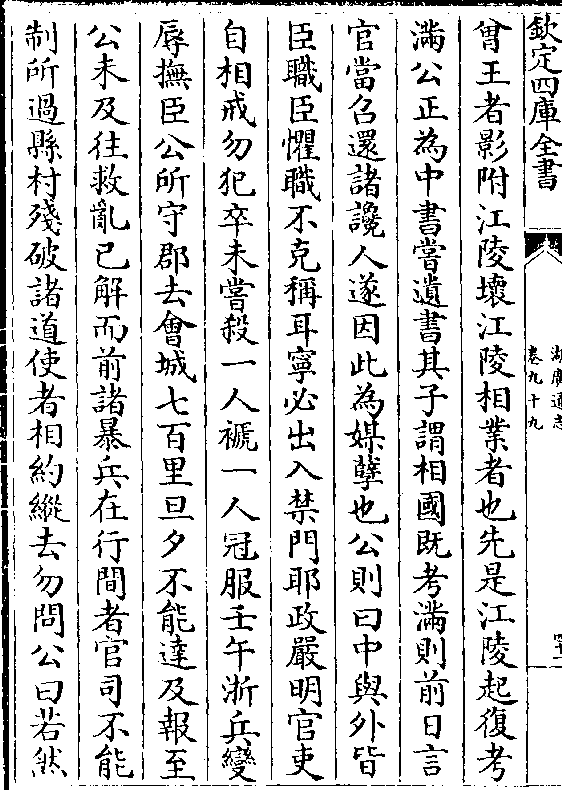 欽定四庫全書
湖廣通志
卷九十九
曾王者影附江陵壞江陵相業者也先是江陵起復考
滿公正為中書嘗遺書其子謂相國既考滿則前日言
官當召還諸讒人遂因此為媒孽也公則曰中與外皆
臣職臣懼職不克稱耳寧必出入禁門耶政嚴明官吏
自相戒勿犯卒未嘗殺一人褫一人冠服壬午浙兵變
辱撫臣公所守郡去會城七百里旦夕不能達及報至
公未及往救亂已解而前諸暴兵在行間者官司不能
制所過縣村殘破諸道使者相約縱去勿問公曰若然